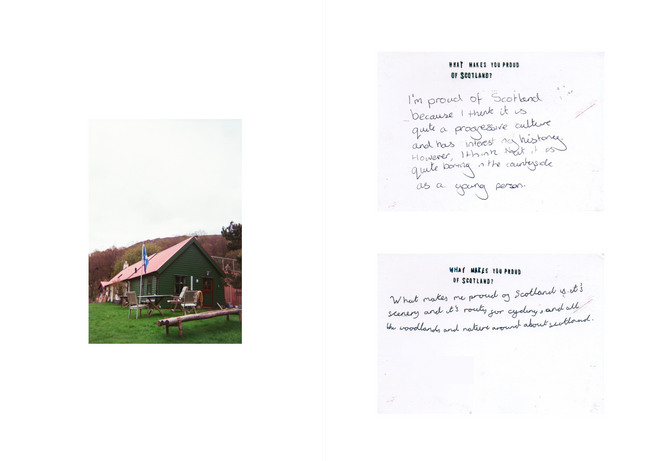 WHAT MAKES YOU PROUD
OF SCOTLAND?
I'm proud of Scotland
because I think it is
quite a progressive culture
and has interesting history.
However, I think that it is
quite boring in the countryside
as a young person.
WHAT MAKES YOU PROUD
OF SCOTLAND?
What makes me proud of Scotland is it's
scenery and it's routes for cycling, and all
the woodlands and nature around about scotland.